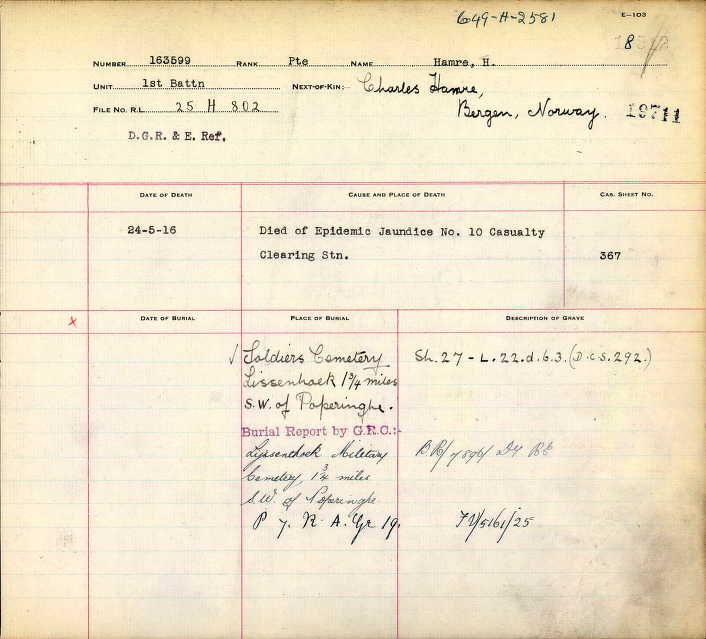 649-H-2581
E-103
NUMBER 163599 RANK Pte NAME Hamre, H.
UNIT 1st Battn NEXT-OF-KIN:- Charles Hamre,
FILE No. R.L. 25 H 802 Bergen, Norway. 19711
D.G.R. & E. Ref.
DATE OF DEATH CAUSE AND PLACE OF DEATH CAS. SHEET NO.
24-5-16 Died of Epidemic Jaundice No. 10 Casualty
Clearing Stn. 367
x DATE OF BURIAL PLACE OF BURIAL DESCRIPTION OF GRAVE
√ Soldiers Cemetery Sh. 27 - L. 22. d. 6. 3. (D.C.S. 292.)
Lissenhoek 1 3/4 miles
S.W. of Poperinghe.
Burial Report by G.R.C.:-
Lyssenthoek Military
Cemetery, 1 3/4 miles
S.W. of Poperinghe
P 7. R. A. Gr 19.